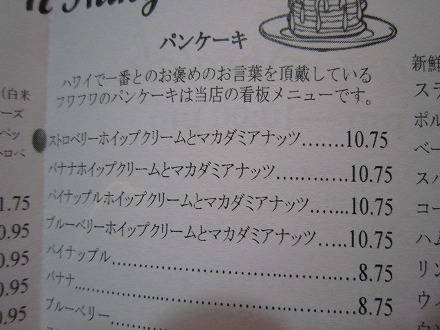 パンケーキ
ハワイで一番とのお褒めのお言葉を頂戴している
フワフワのパンケーキは当店の看板メニューです。
ストロベリーホイップクリームとマカダミアナッツ......10.75
バナナホイップクリームとマカダミアナッツ............10.75
パイナップルホイップクリームとマカダミアナッツ.......10.75
ブルーベリーホイップクリームとマカダミアナッツ......10.75
パイナップル........................8.75
バナナ..............................8.75
ブルーベリー........................8.75
(白米
ーズ
ベッ
トロベ
1.75
0.95
0.95
0.95
0.95
新鮮
スラ
ボル
ベー
スパ
コー
ハム
リン
ウィ